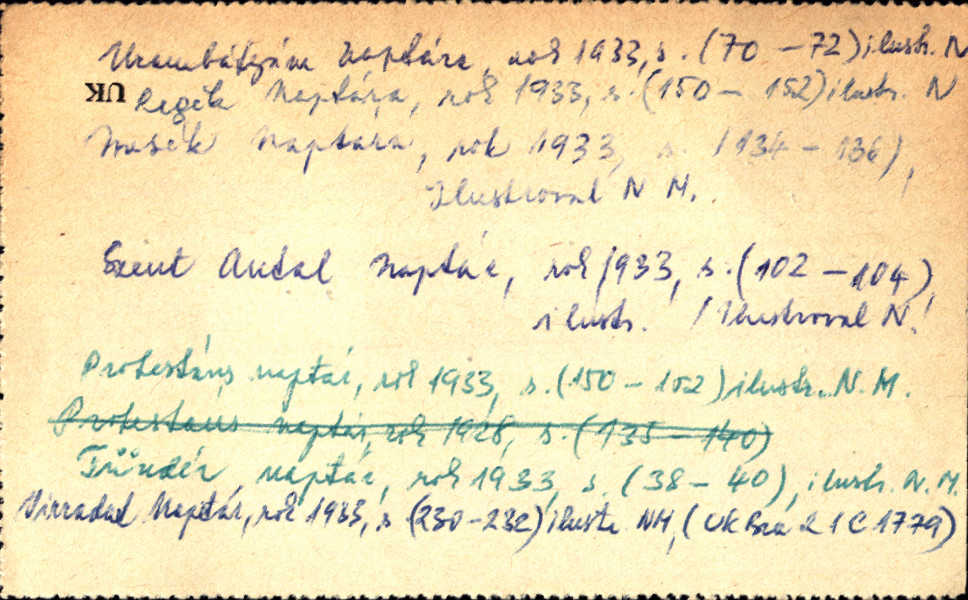 Urambátyám Naptára, rok 1933, s. (70 – 72) ilustr. N
UK Regék Naptára, rok 1933, s. (150 – 152) ilustr. N
Mesék Naptára, rok 1933, s. (134 – 136),
Ilustroval N M.
Szent Antal Naptár, rok 1933, s. (102 – 104),
ilustr. / Ilustroval N!
Protestáns naptár, rok 1933, s. (150 – 152) ilustr. N. M.
Protestáns naptár, rok 1928, s. (135 – 140)
Tündér naptár, rok 1933, s. (38 – 40), ilustr. N. M.
Virradat Naptár, rok 1933, s (230-232) ilustr. NM, (UK Bra 2 1 C 1779)